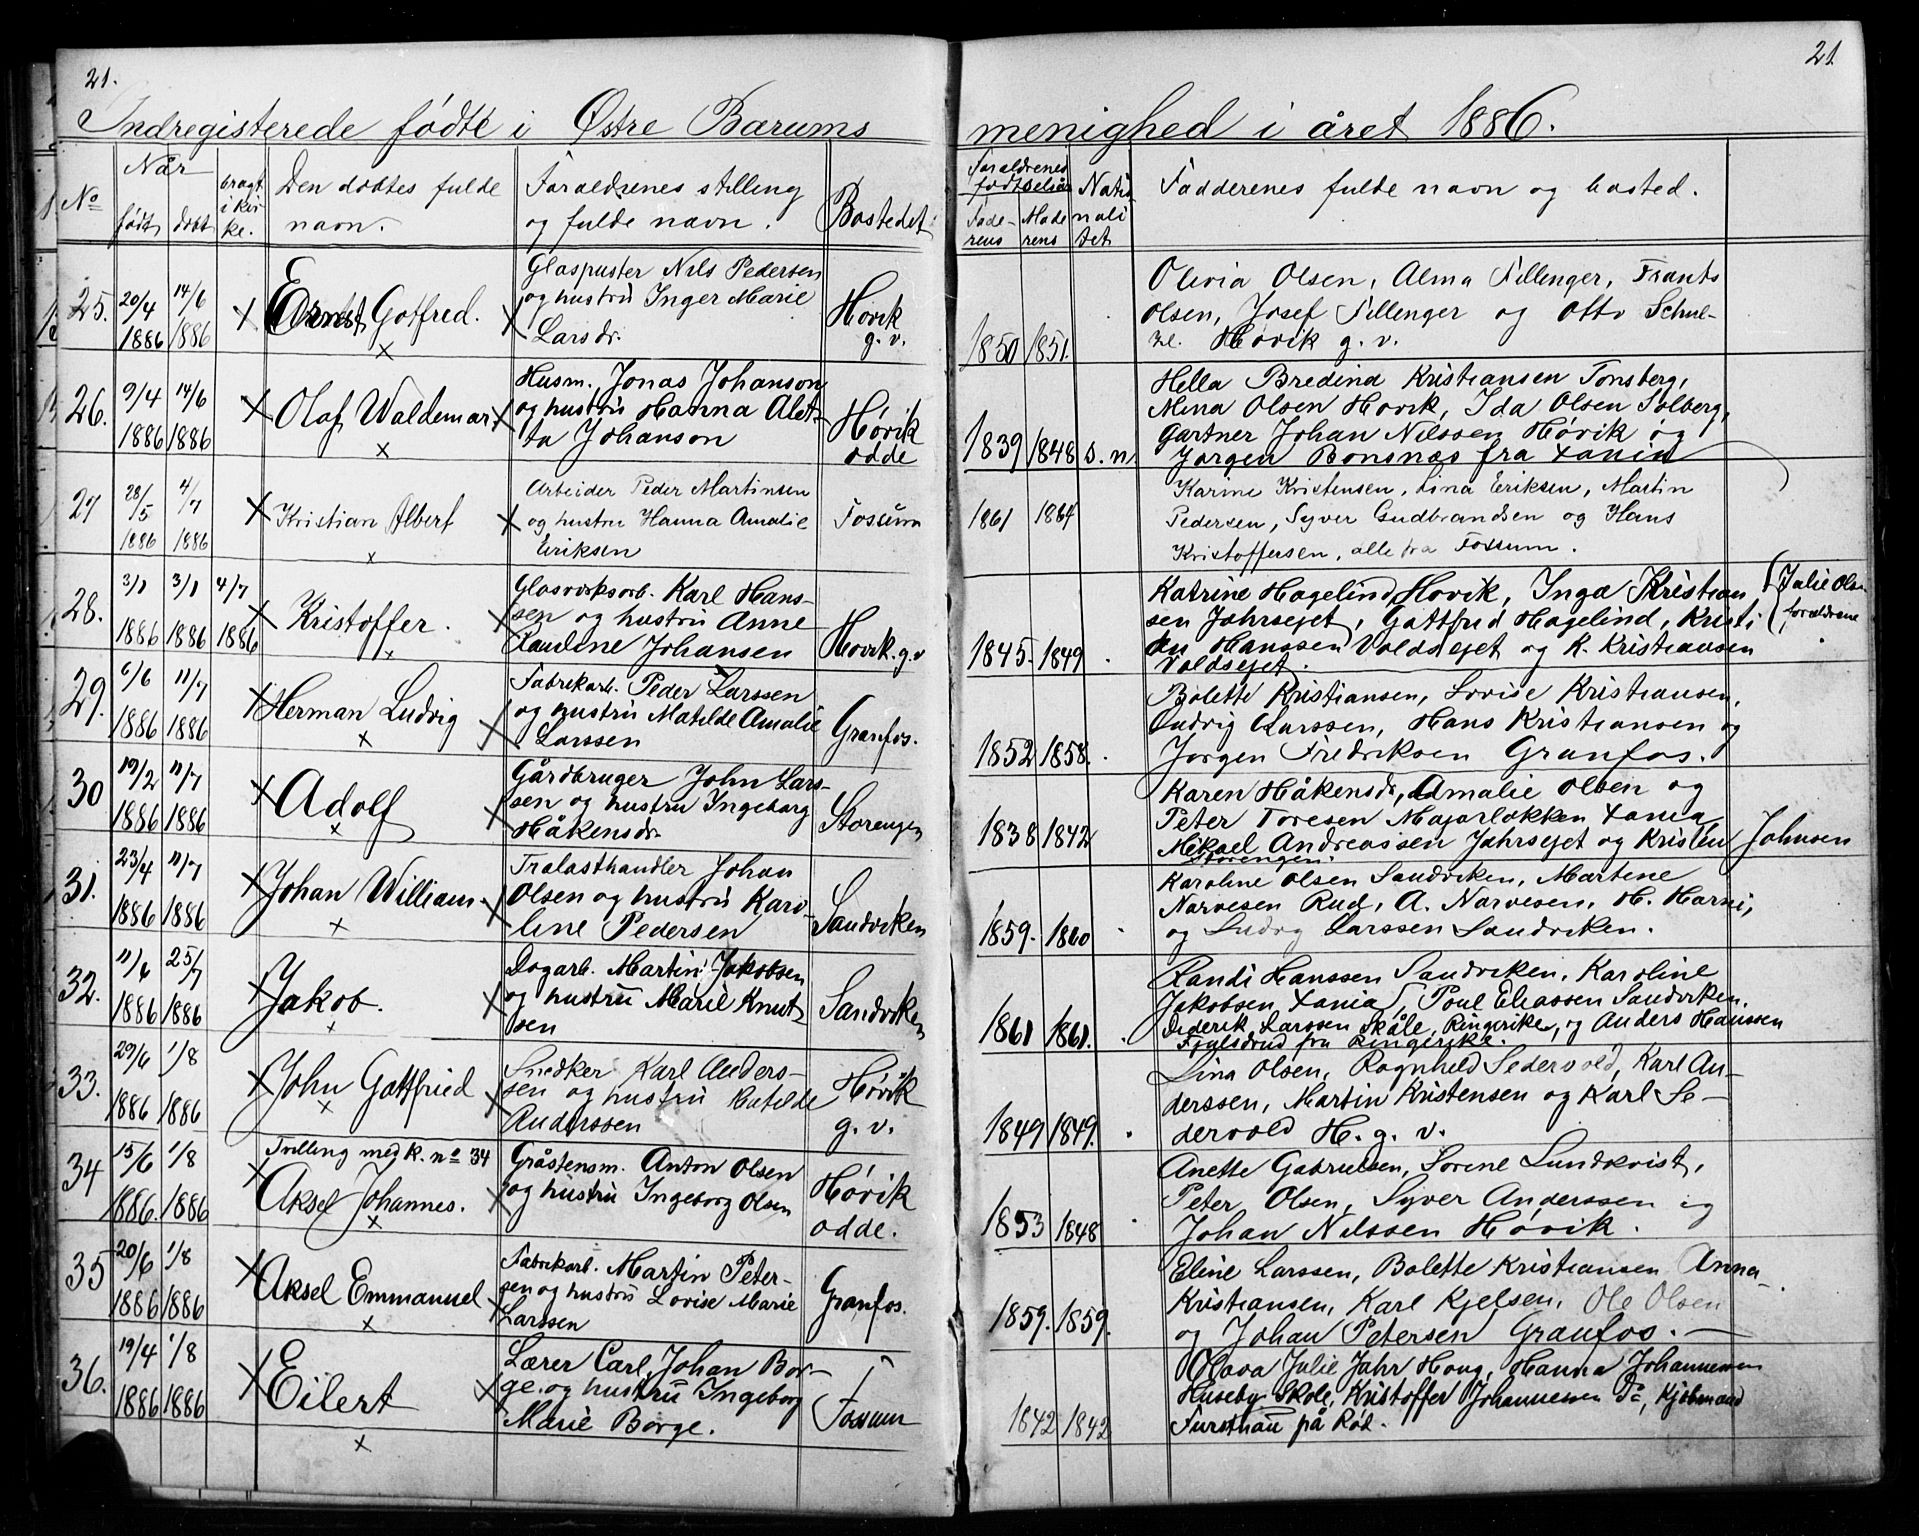 21.
21
Indregisterede födte i Østre Barums menighed i året 1886.
No
Når
födt
döbt
bragt i kirke.
Den döbtes fulde navn.
Foraldrenes stilling og fulde navn.
Bostedet
Foraldrenes födselsår
Faderens
Moderens
Nationalitet
Fadderenes fulde navn og bosted.
25. 20/4 1886 14/6 1886
Ernst Gotfred.
Glaspuster Nils Pedersen
og hustru Inger Marie
Larsdr.
Hövik
g. v.
1850 1851.
Olivia Olsen, Alma Fillenger, Frants
Olsen, Josef Fillenger og Otto Schul-
ze. Hövik g. v.
26. 9/4 1886 14/6 1886
Olaf Waldemar
Husm. Jonas Johanson
og hustru Hanna Alet-
ta Johanson
Hövik
odde
1839 1848 s. n.
Hella Bredina Kristiansen Tonsberg,
Mina Olsen Hovik, Ida Olsen Solberg,
Gartner Johan Nilssen Hövik og
Jorgen Bonsnæs fra Xania
27 28/5 1886 4/7 1886
Kristian Albert
Arbeider Peder Martinsen
og hustru Hanna Amalie
Eriksen
Fossum
1861 1864
Karine Kristensen, Lina Eriksen, Martin
Pedersen, Syver Gudbrandsen og Hans
Kristoffersen, alle fra Fossum.
28. 3/1 1886 3/1 1886 4/7 1886
Kristoffer.
Glasværksarb. Karl Hans-
sen og hustru Anne
Pauline Johansen
Hovik. g. v
1845. 1849
Katrine Hagelind Hovik, Inga Kristian
sen Jahrsejet, Gottfrid Hagelind, Kristi
an Hanssen Voldsejet og K. Kristiansen
Voldsejet.
Julie Olsen
forældrene
29. 6/6 1886 11/7 1886
Herman Ludvig
Fabrikarb. Peder Larssen
og hustru Matilde Amalie
Larssen
Granfos.
1852 1858.
Bolette Kristiansen, Lovise Kristiansen,
Ludvig Larssen, Hans Kristiansen og
Jorgen Fredriksen Granfos.
30 19/2 1886 11/7 1886
Adolf
Gårdbruger John Lars-
sen og hustru Ingeborg
Håkensdr.
Storengen
1838 1842
Karen Håkensdr, Amalie Olsen og
Peter Toresen Majorløkken Xania,
Mikael Andreassen Jahrsejet og Kristen Johnsen
Storengen.
31. 23/4 1886 11/7 1886
Johan William.
Tralasthandler Johan
Olsen og hustru Karo-
line Pedersen
Sandviken
1859. 1860
Karoline Olsen Sandviken, Martine
Narvesen Rud, A. Narvesen, H. Harni,
og Ludvg Larssen Sandviken.
32. 11/6 1886 25/7 1886
Jakob.
Dagarb. Martin Jakobsen
og hustru Marie Knut-
sen
Sandviken
1861 1861.
Randi Hanssen Sandviken, Karoline
Jakobsen Xania, Poul Eliassen Sandviken.
Diderik Larssen Skåle, Ringerike, og Anders Hanssen
Fjulsrud fra Ringerike.
33. 29/6 1886 1/8 1886
John Gottfried
Snedker Karl Anders-
sen og hustru Matilde
Anderssen
Hövik
g. v.
1849 1849.
Lina Olsen, Ragnhild Sedervold, Karl An-
derssen, Martin Kristensen og Karl Se-
dervold H. g. v.
34 15/6 1886. 1/8 1886
Tvilling med k. no 34
Aksel Johannes.
Gråstensm. Anton Olsen
og hustru Ingeborg Olsen
Hövik
odde.
1853 1848
Anette Gabrielsen, Sorine Lundkvist,
Peter Olsen, Syver Anderssen og
Johan Nilssen Hövik.
35 20/6 1886 1/8 1886
Aksel Emmanuel
Fabrikarb. Martin Peter-
sen og hustru Lovise Marie
Larssen
Granfos.
1859. 1859.
Eline Larssen, Bolette Kristiansen Anna
Kristiansen, Karl Kjelsen, Ole Olsen
og Johan Petersen Granfos.
36. 19/4 1886 1/8 1886
Eilert
Lærer Carl Johan Bor-
ge og hustru Ingeborg
Marie Borge.
Fossum
1842 1842
Olava Julie Jahr Houg, Hanna Johannessen
Huseby Skole, Kristoffer Johannessen Do, Kjöbmand
på Röd.